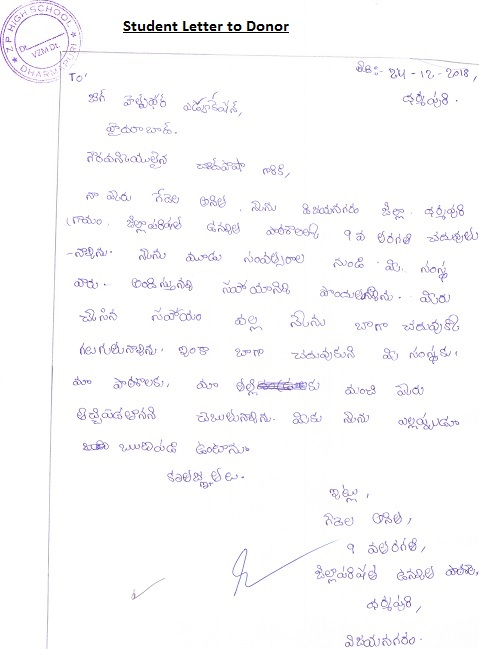 Student Letter to Donor
Z P HIGH SCHOOL
VZM Dt.
DHARMAPURI
TO'
తేది:- 24-12-2018,
ధర్మపురి.
హైదరాబాద్.
గౌరవనీయులైన గారికి,
నా పేరు గేదెల నేను విజయనగరం జిల్లా ధర్మపురి
గ్రామం. జిల్లాపరిషత్ ఉన్నత పాఠశాలలో 9వ తరగతి చదువుతు
-న్నాను. నేను మూడు సంవత్సరాల నుండి మీ సంస్థ
వారు. అందిస్తున్న సహాయాన్ని పొందుతున్నాను. మీరు
చేసిన సహాయం వల్ల నేను బాగా చదువుకో
గలుగుతున్నాను. ఇంకా బాగా చదువుకుని మీ సంస్థకు,
మా పాఠశాలకు, మా మంచి పేరు
తెచ్చిపెడతానని చెబుతున్నాను. మీకు నేను ఎల్లప్పుడూ
ఋణపడి ఉంటాను
కృతజ్ఞతలు.
ఇట్లు,
గేదెల
9 వ తరగతి,
జిల్లాపరిషత్ ఉన్నత పాఠశాల,
ధర్మపురి,
విజయనగరం.